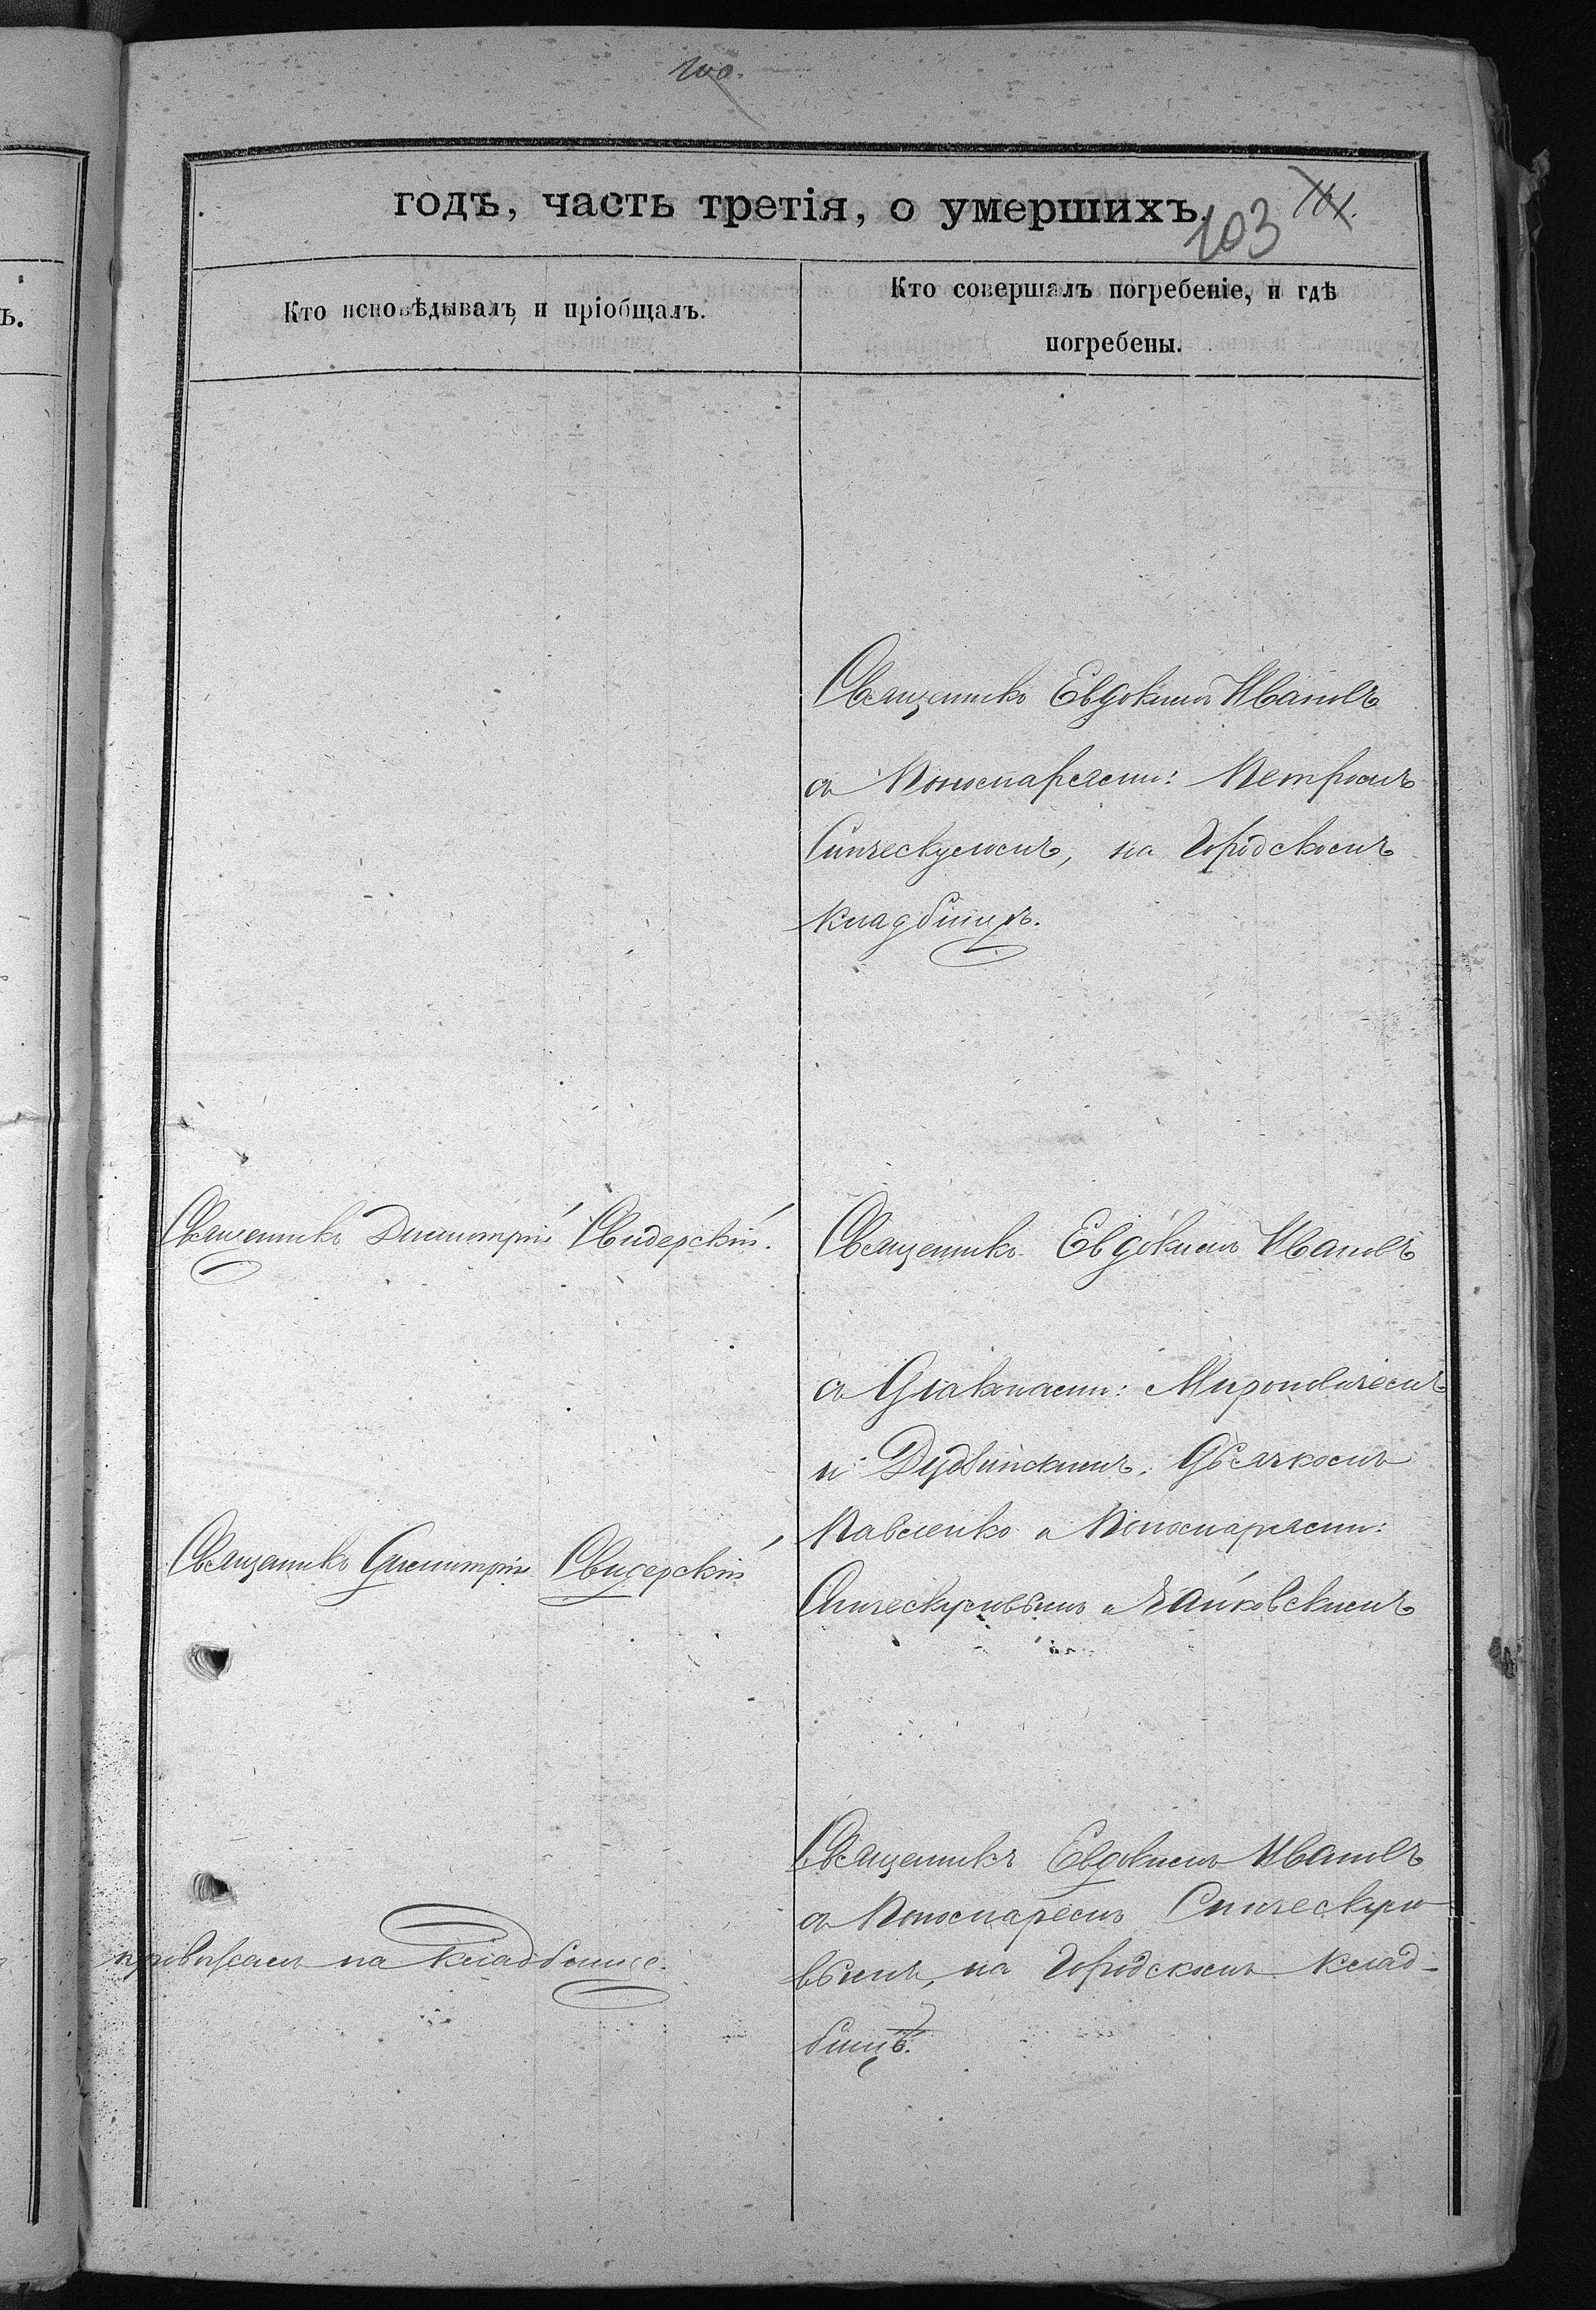 200.
годѣ, часть третія, о умершихъ.
103
101.
Кто исповѣдывалъ и пріобщалъ.
Кто совершалъ погребеніе, и гдѣ
погребены.
Священникъ Евдокимъ Ивановъ
съ Пономарями: Петромъ
на Городскомъ
кладбищѣ.
Священникъ Димитрій Свидерскій.
Священникъ Евдокимъ Ивановъ
съ Діаконами: Мироновичемъ
и Дудвинскимъ, Дьячкомъ
Павленко и Пономарями:
и Чайковскимъ
Священникъ Димитрій Свидерскій
Священникъ Евдокимъ Ивановъ
съ Пономаремъ Спическу
вымъ, на Городскомъ клад-
бищѣ.
на кладбище.